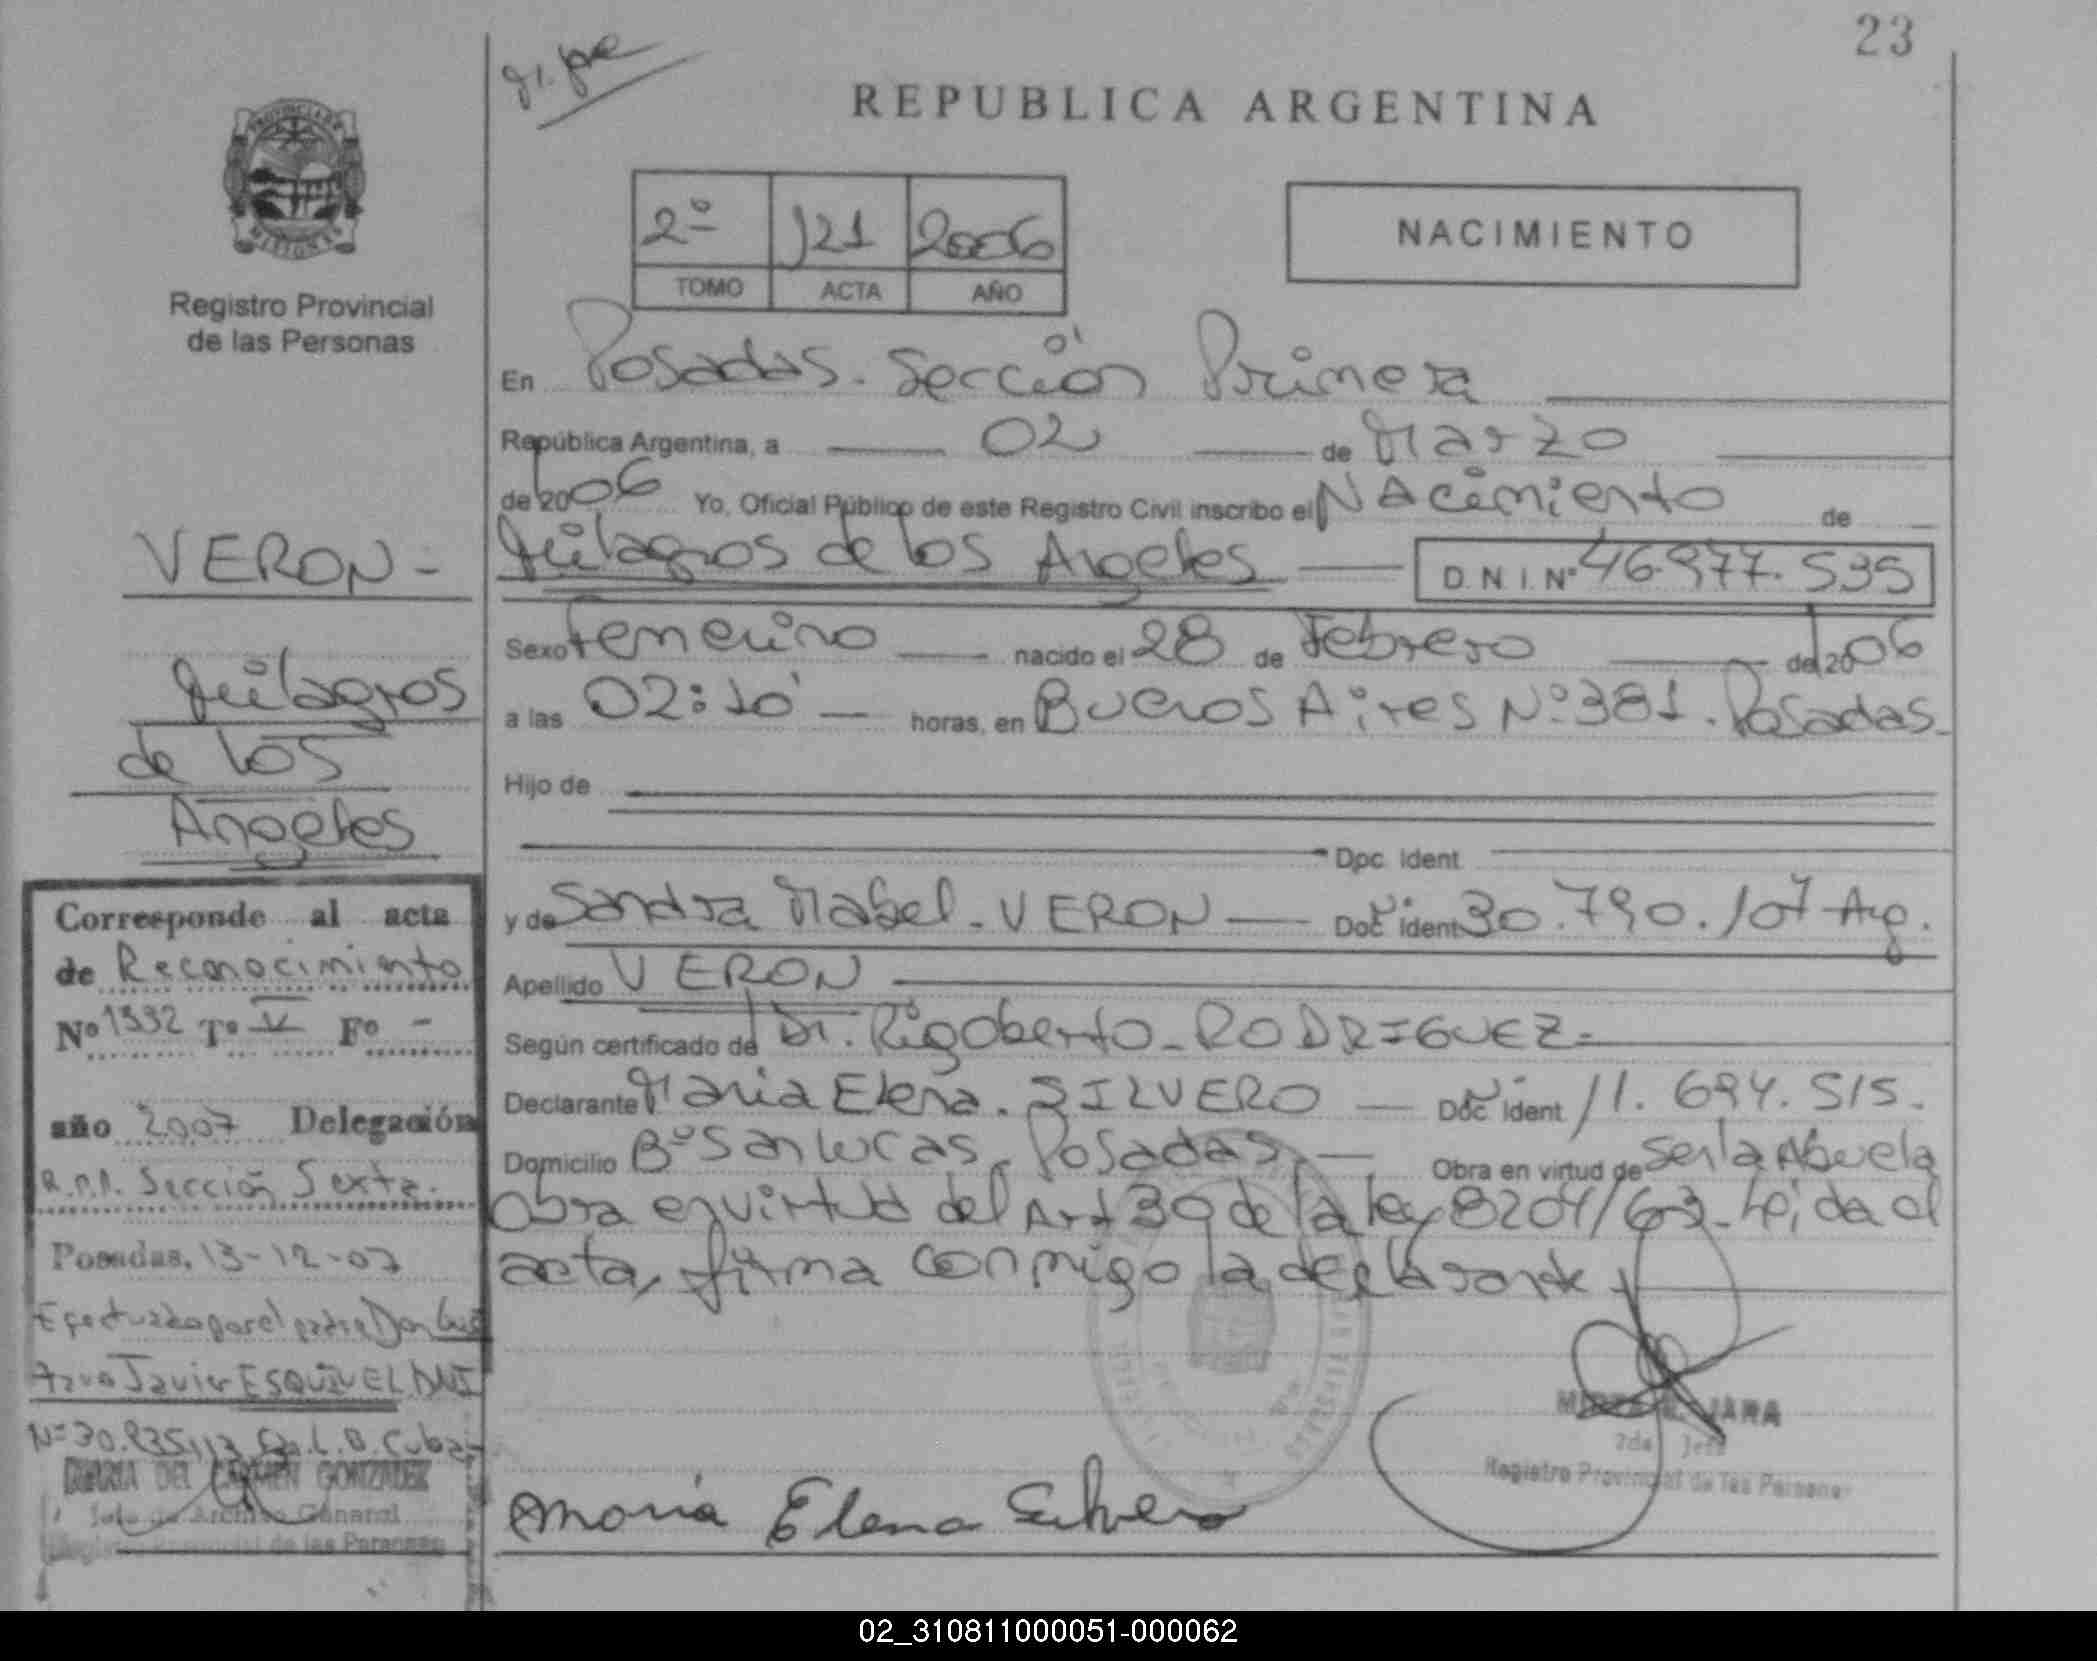 23
REPUBLICA ARGENTINA
PROVINCIA DE
MISIONES
Registro Provincial
de las Personas
2º 121 2006
TOMO ACTA AÑO
NACIMIENTO
En Posadas. Sección Primera
República Argentina, a 02 de Marzo
de 2006 Yo, Oficial Público de este Registro Civil inscribo el Nacimiento de
Milagros de los Angeles D.N.I. Nº 46.977.535
Sexo Femenino nacido el 28 de Febrero de 2006
a las 02:10 horas, en Buenos Aires Nº 381. Posadas.
Hijo de
Doc. Ident.
y de Sandra Mabel - VERON Doc. Ident. 30.790.107 Arg.
Apellido VERON
Según certificado de Dr. Rigoberto - RODRIGUEZ-
Declarante Maria Elena. SILVERO Doc. Ident. 11.694.515.
Domicilio Bº San Lucas. Posadas. Obra en virtud de ser la Abuela
Obra en virtud del Art 30 de la ley 8204/63. Leida el
acta, firma conmigo la declarante
VERON-
Milagros
de los
Angeles
Corresponde al acta
de Reconocimiento
Nº 1332 Tº V Fº -
año 2007 Delegación
R.P.P. Sección Sexta.
Posadas, 13-12-07
Efectuado por el padre Don
Javier ESQUIVEL DNI
MARIA DEL CARMEN GONZALEZ
Jefe de Archivo General
Registro Provincial de las Personas
Maria Elena Silvero
JARA
2da Jefe
Registro Provincial de las Personas
02_310811000051-000062